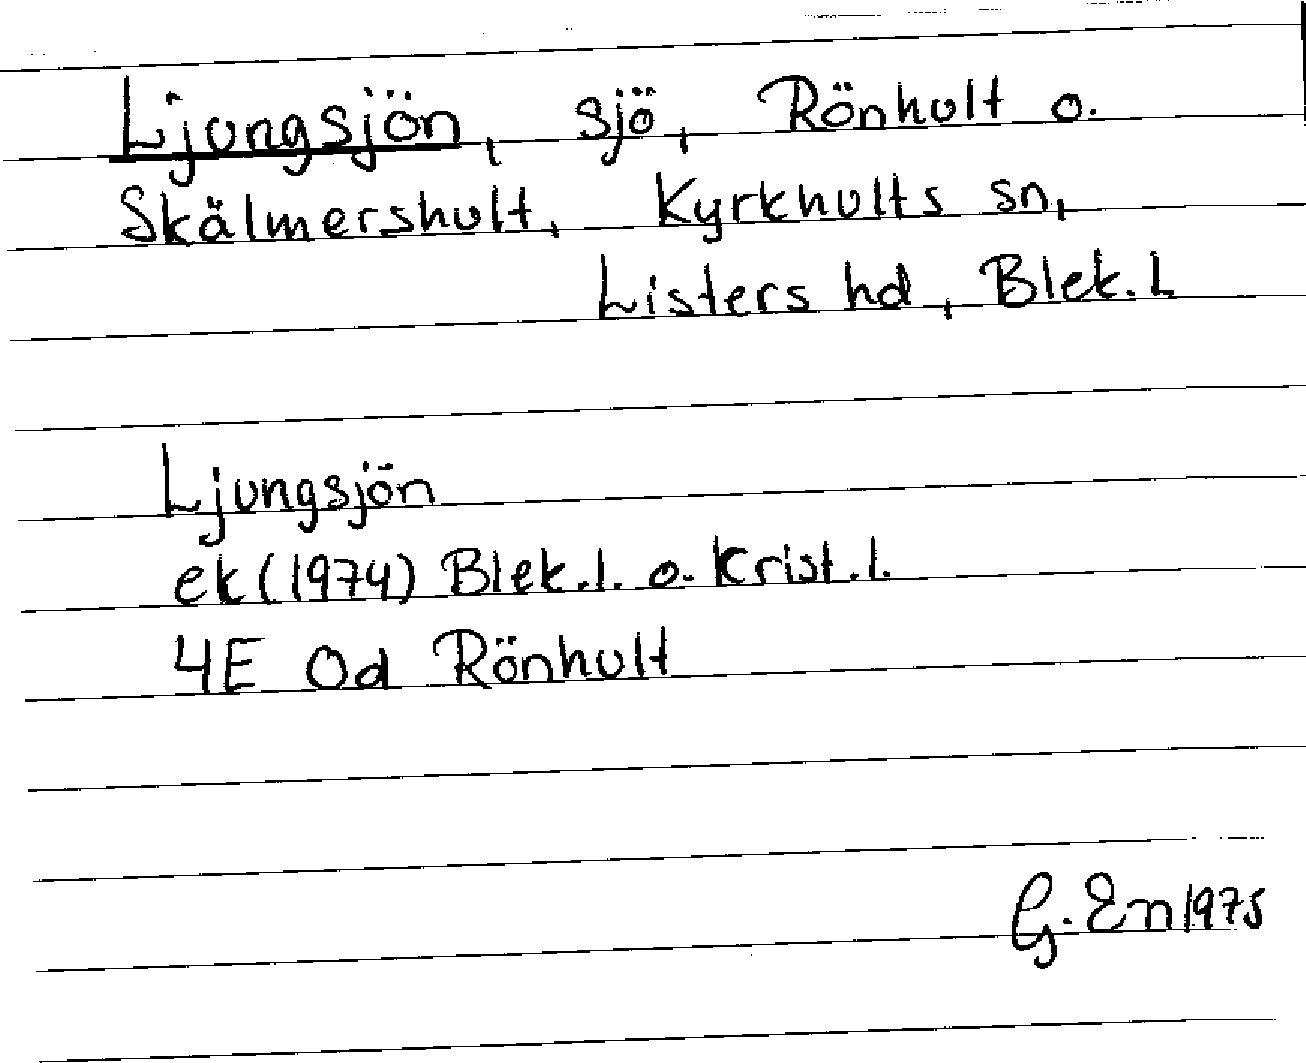 Ljungsjön, sjö, Rönhult o.
Skälmershult, Kyrkhults sn,
Listers hd, Blek. L
Ljungsjön
ek (1974) Blek.l. o. Krist.l.
4E Od Rönhult
G. En 1975